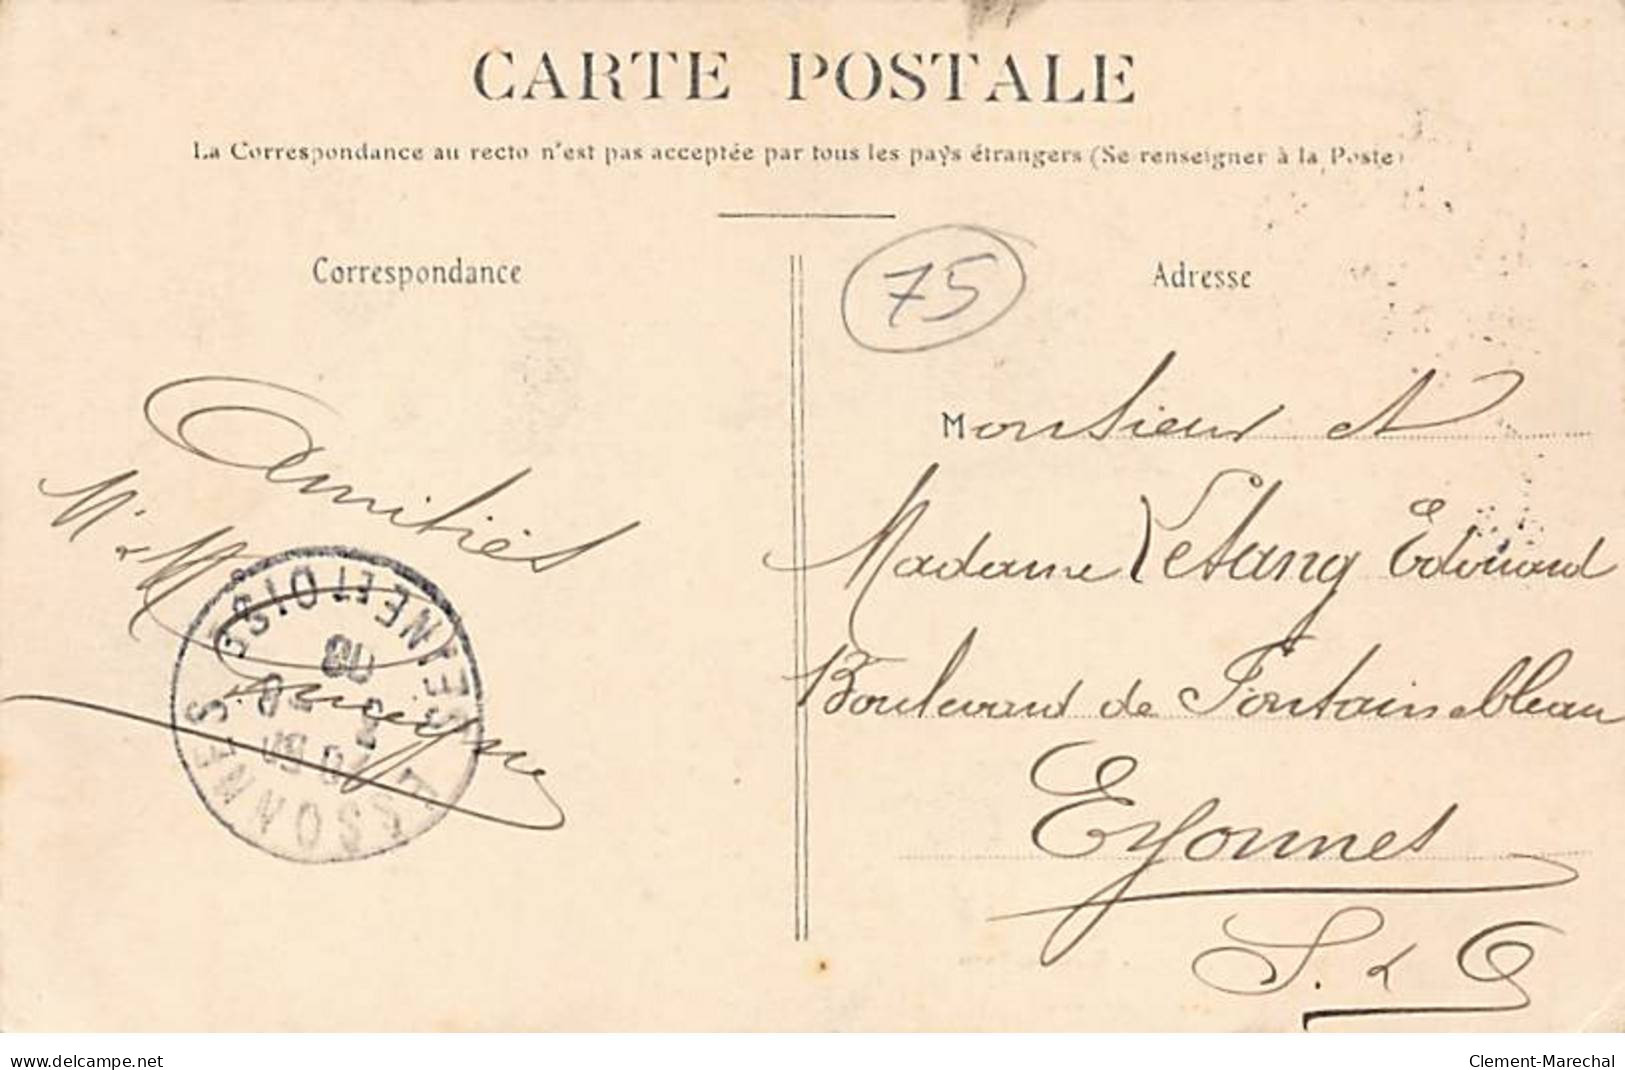 CARTE POSTALE
La Correspondance au recto n'est pas acceptée par tous les pays étrangers (Se renseigner à la Poste)
Correspondance
Adresse
75
Amitiés
Monsieur et
Madame Létang Edouard
Boulevard de Fontainebleau
Essonnes
S. & O
ESSONNES
SEINE ET OISE
www.delcampe.net
Clement-Marechal